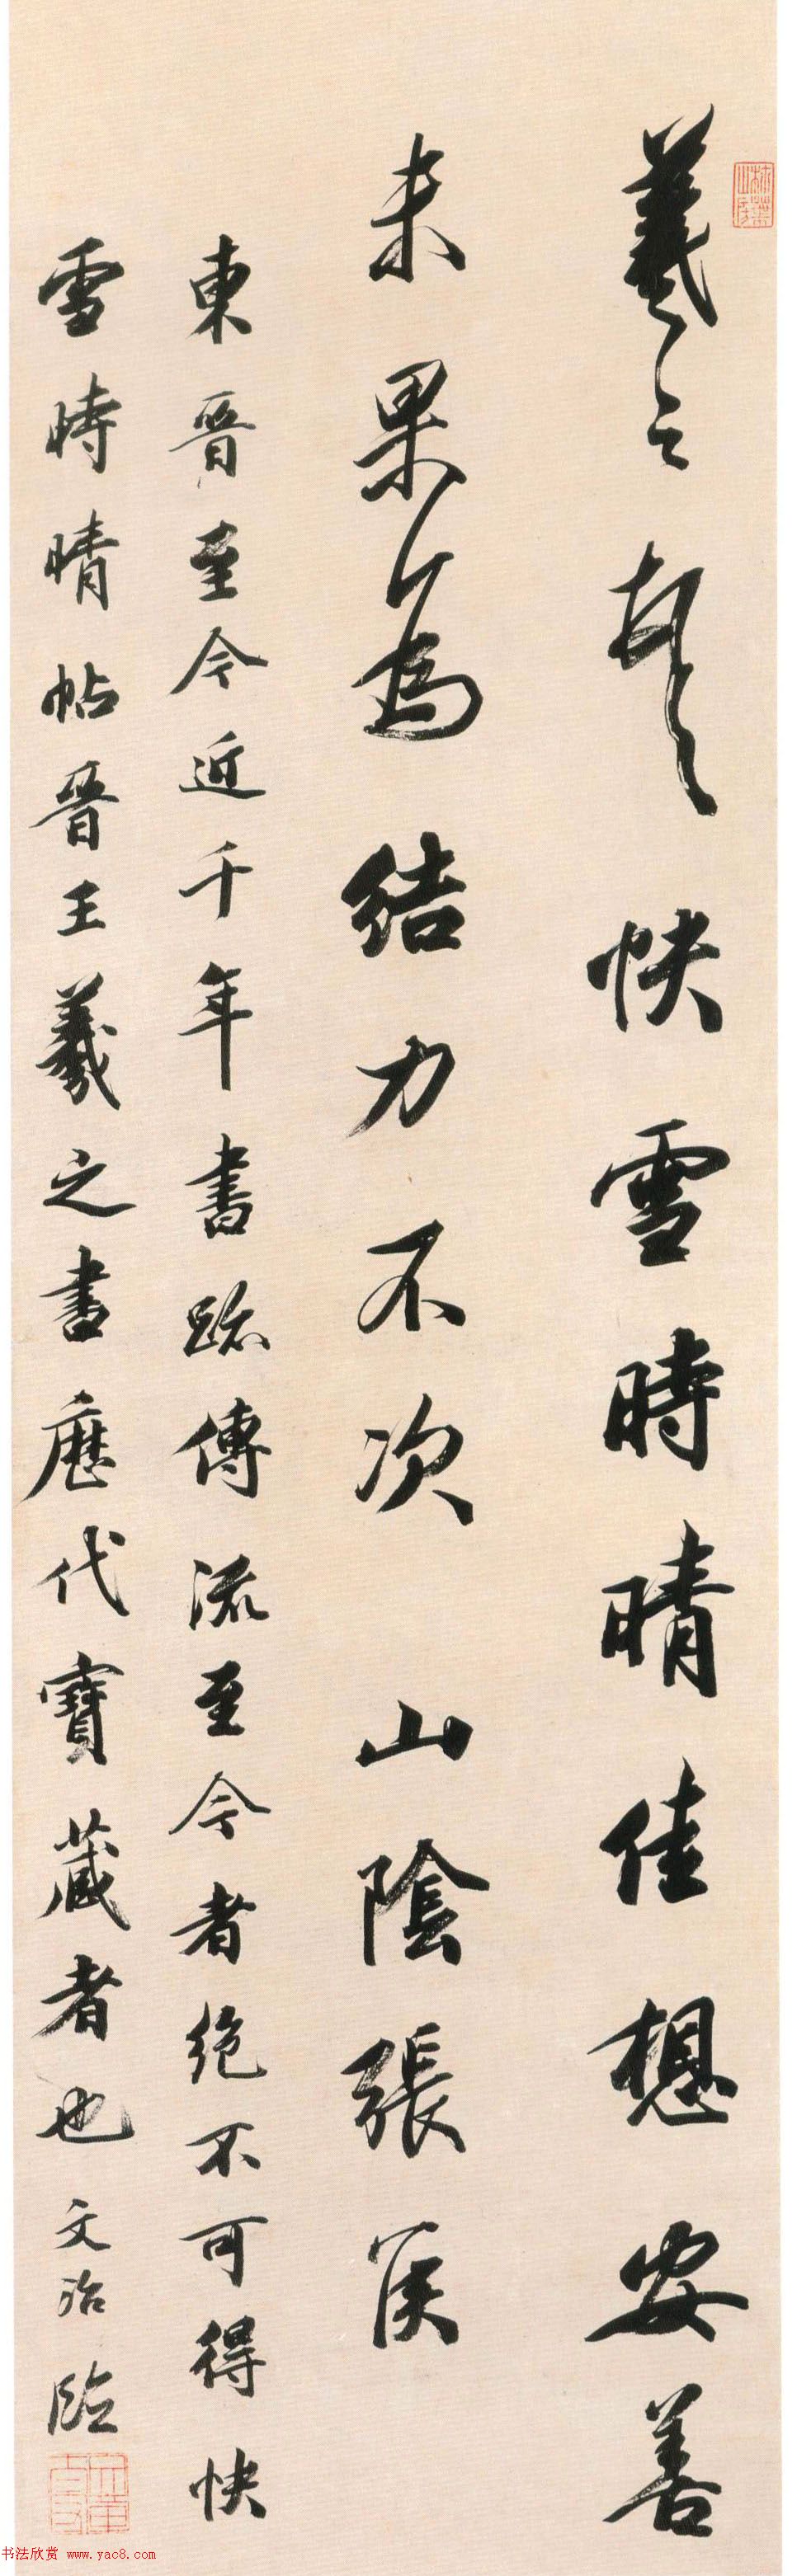 羲之頓首快雪時晴佳想安善
未果為結力不次 山陰張侯
東晉至今近千年書跡傳流至今者絕不可得快
雪時晴帖晉王羲之書歷代寶藏者也文治臨
书法欣赏 www.yac8.com